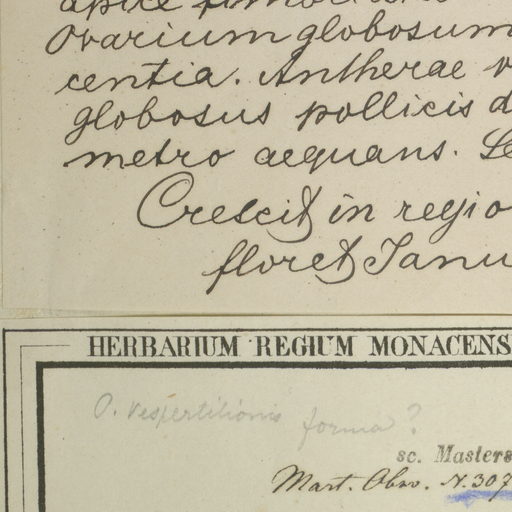 Ovarium globosum
centia. Antherae
globosus pollicis d
metro aequans.
Crescit in regio
floret Janu
HERBARIUM REGIUM MONACENS
O. vespertilionis forma?
sc. Masters
Mart. Obs. N. 307